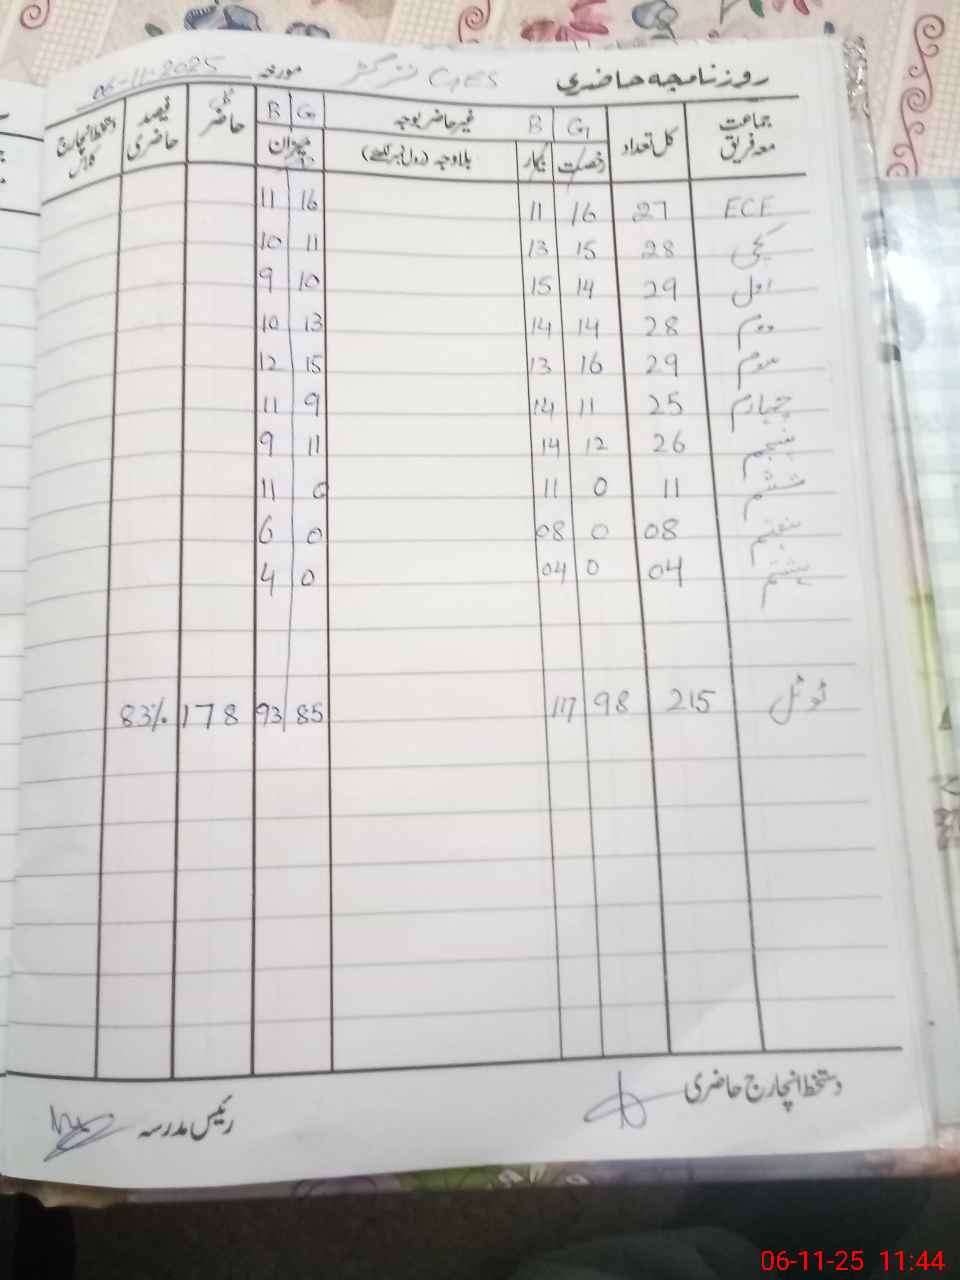 روزنامچہ حاضری GES مورخہ 06-11-2025
جماعت معہ فریق کل تعداد G B غیر حاضر بوجہ G B کل حاضر فیصد حاضری دستخط انچارج کلاس
رخصت بیمار بلاوجہ (رول نمبر لکھئے) میزان
ECE 27 16 11 16 11
کچی 28 15 13 11 10
اول 29 14 15 10 9
دوم 28 14 14 13 10
سوم 29 16 13 15 12
چہارم 25 11 14 9 11
پنجم 26 12 14 11 9
ششم 11 0 11 0 11
ہفتم 08 0 08 0 6
ہشتم 04 0 04 0 4
ٹوٹل 215 98 117 85 93 178 83%
دستخط انچارج حاضری
رئیس مدرسہ
06-11-25 11:44